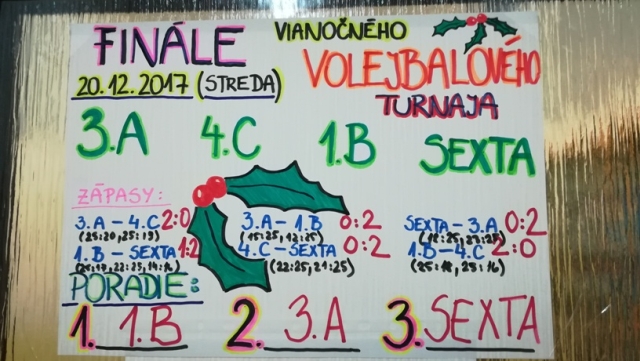 FINÁLE VIANOČNÉHO
20.12.2017 (STREDA) VOLEJBALOVÉHO
TURNAJA
3.A 4.C 1.B SEXTA
ZÁPASY:
3.A - 4.C 2:0 3.A - 1.B 0:2 SEXTA - 3.A 0:2
(25:20, 25:19) (15:25, 12:25)
1.B - SEXTA 1:2 4.C - SEXTA 0:2 1.B - 4.C 2:0
(22:25, 21:25) (25:18, 25:16)
PORADIE:
1. 1.B 2. 3.A 3. SEXTA